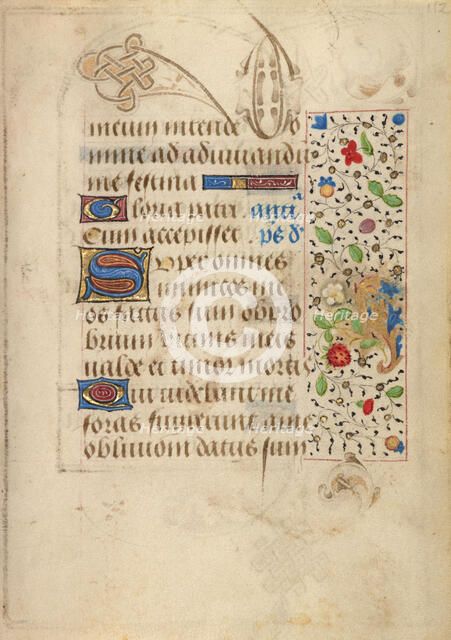 112
meum intende Do
mine ad adiuuandū
me festina
Gloria patri antī
Cum accepisset ps d̄
Super omnes
inimicos me
os factus sum obpro
brium vicinis meis
valde et timor mortis
Qui videbant me
foras fugerunt a me
obliuioni datus sum
Heritage
Heritage
Heritage
Heritage